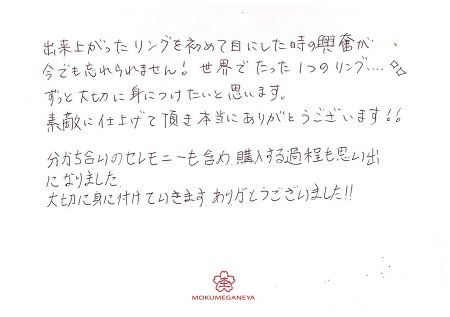 出来上がったリングを初めて目にした時の興奮が
今でも忘れられません！世界でたった1つのリング....
ずっと大切に身につけたいと思います。
素敵に仕上げて頂き本当にありがとうございます!!
分かち合いのセレモニーも含め、購入する過程も思い出
になりました
大切に身に付けていきます ありがとうございました!!
MOKUMEGANEYA